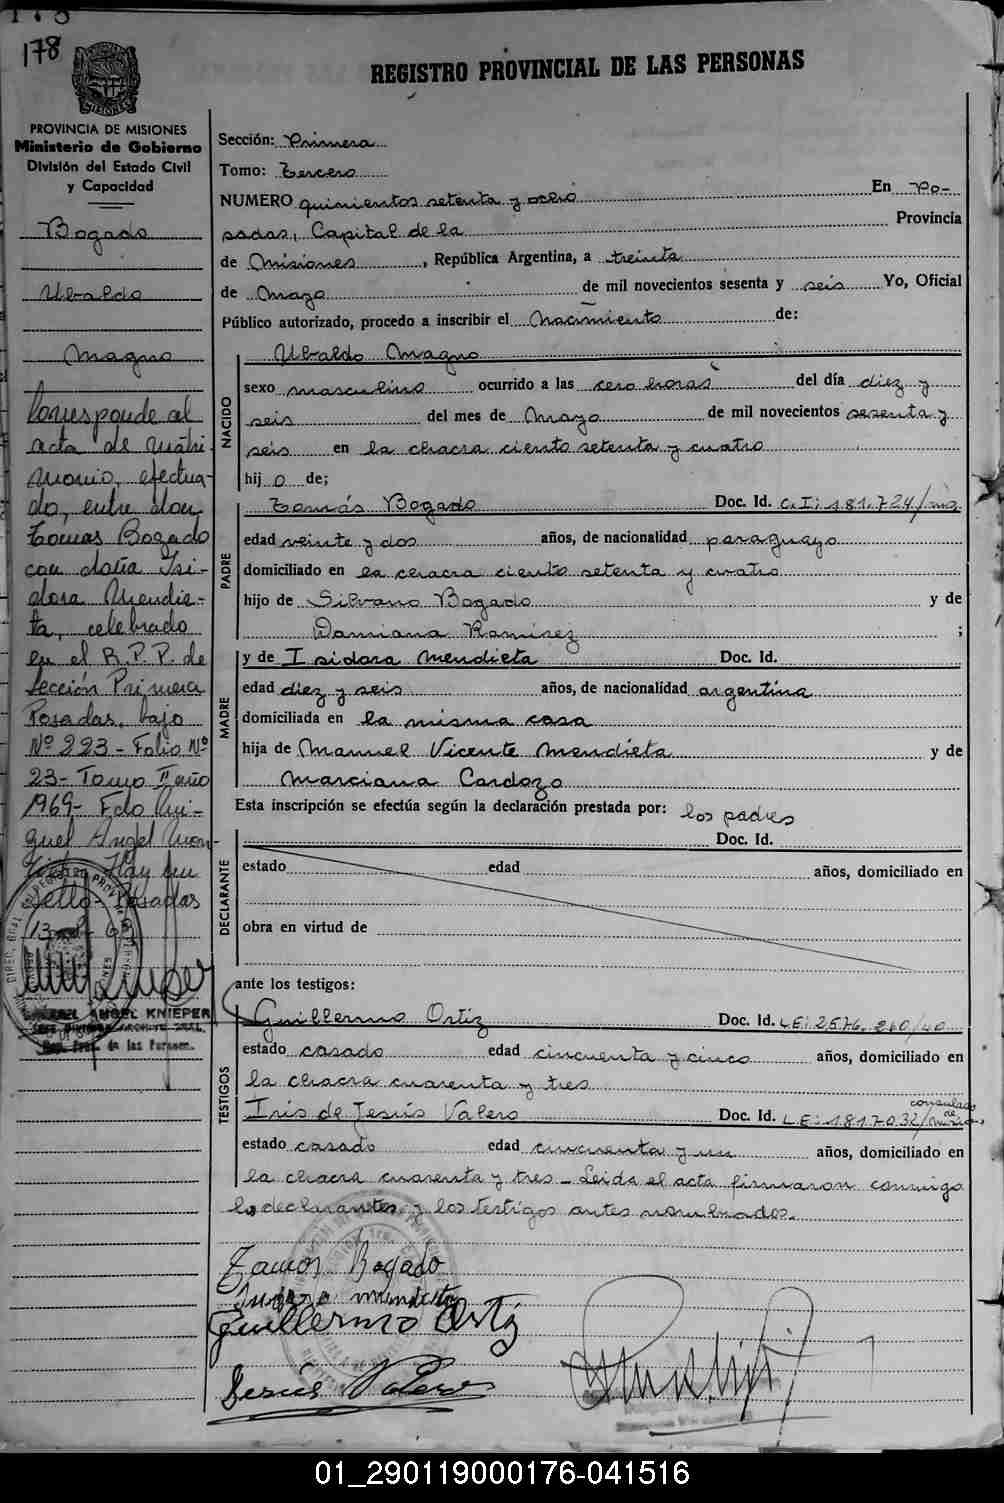 178
REGISTRO PROVINCIAL DE LAS PERSONAS
PROVINCIA DE MISIONES
Ministerio de Gobierno
División del Estado Civil
y Capacidad
Bogado
Ubaldo
Magno
Corresponde al
acta de matri-
monio, efectua-
do, entre don
Tomas Bogado
con doña Isi-
dora Mendie-
ta, celebrado
en el R.P.P. de
Sección Primera
Posadas, bajo
Nº 223 - Folio Nº
23 - Tomo II año
1969 - Fdo Mi-
guel Angel
Hay un
Sello - Posadas
ANGEL KNIEPER
Sección: Primera
Tomo: Tercero
NUMERO quinientos setenta y ocho En Po-
sadas, Capital de la Provincia
de Misiones, República Argentina, a treinta
de Mayo de mil novecientos sesenta y seis Yo, Oficial
Público autorizado, procedo a inscribir el Nacimiento de:
Ubaldo Magno
NACIDO
sexo masculino ocurrido a las cero horas del día diez y
seis del mes de Mayo de mil novecientos sesenta y
seis en la chacra ciento setenta y cuatro
hijo de;
PADRE
Tomás Bogado Doc. Id. C.I: 181.724/mis.
edad veinte y dos años, de nacionalidad paraguayo
domiciliado en la chacra ciento setenta y cuatro
hijo de Silvano Bogado y de
Damiana Ramirez ;
MADRE
y de Isidora Mendieta Doc. Id.
edad diez y seis años, de nacionalidad argentina
domiciliada en la misma casa
hija de Manuel Vicente Mendieta y de
Marciana Cardozo
Esta inscripción se efectúa según la declaración prestada por: los padres
DECLARANTE
Doc. Id.
estado edad años, domiciliado en
obra en virtud de
ante los testigos:
TESTIGOS
Guillermo Ortiz Doc. Id. LE: 2576.260/40
estado casado edad cincuenta y cinco años, domiciliado en
la chacra cuarenta y tres
Iris de Jesús Valero Doc. Id. LE: 1817032/
consulado de
estado casado edad cincuenta y un años, domiciliado en
la chacra cuarenta y tres - Leida el acta firmaron conmigo
los declarantes y los testigos antes nombrados.
Tamos Bogado
Mendieta
Guillermo Ortiz
Jesús Valero
01_290119000176-041516